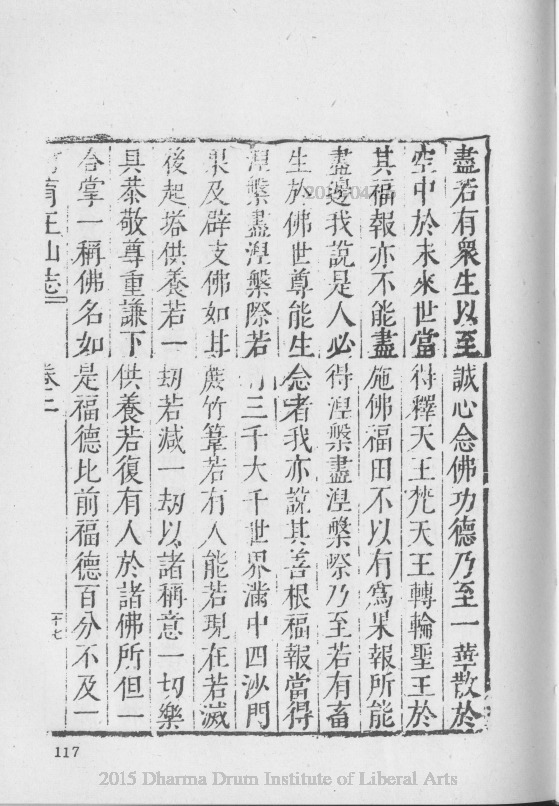 盡若有衆生以至誠心念佛功德乃至一華散於
空中於未來世當得釋天王梵天王轉輪聖王於
其福報亦不能盡施佛福田不以有爲果報所能
盡邊我說是人必得涅槃盡涅槃際乃至若有畜
生於佛世尊能生念者我亦說其善根福報當得
涅槃盡涅槃際若 三千大千世界滿中四沙門
果及辟支佛如甘蔗竹葦若有人能若現在若滅
後起塔供養若一劫若減一劫以諸稱意一切樂
具恭敬尊重謙下供養若復有人於諸佛所但一
合掌一稱佛名如是福德比前福德百分不及一
育王山志 卷二 十七
117
2015 Dharma Drum Institute of Liberal Arts